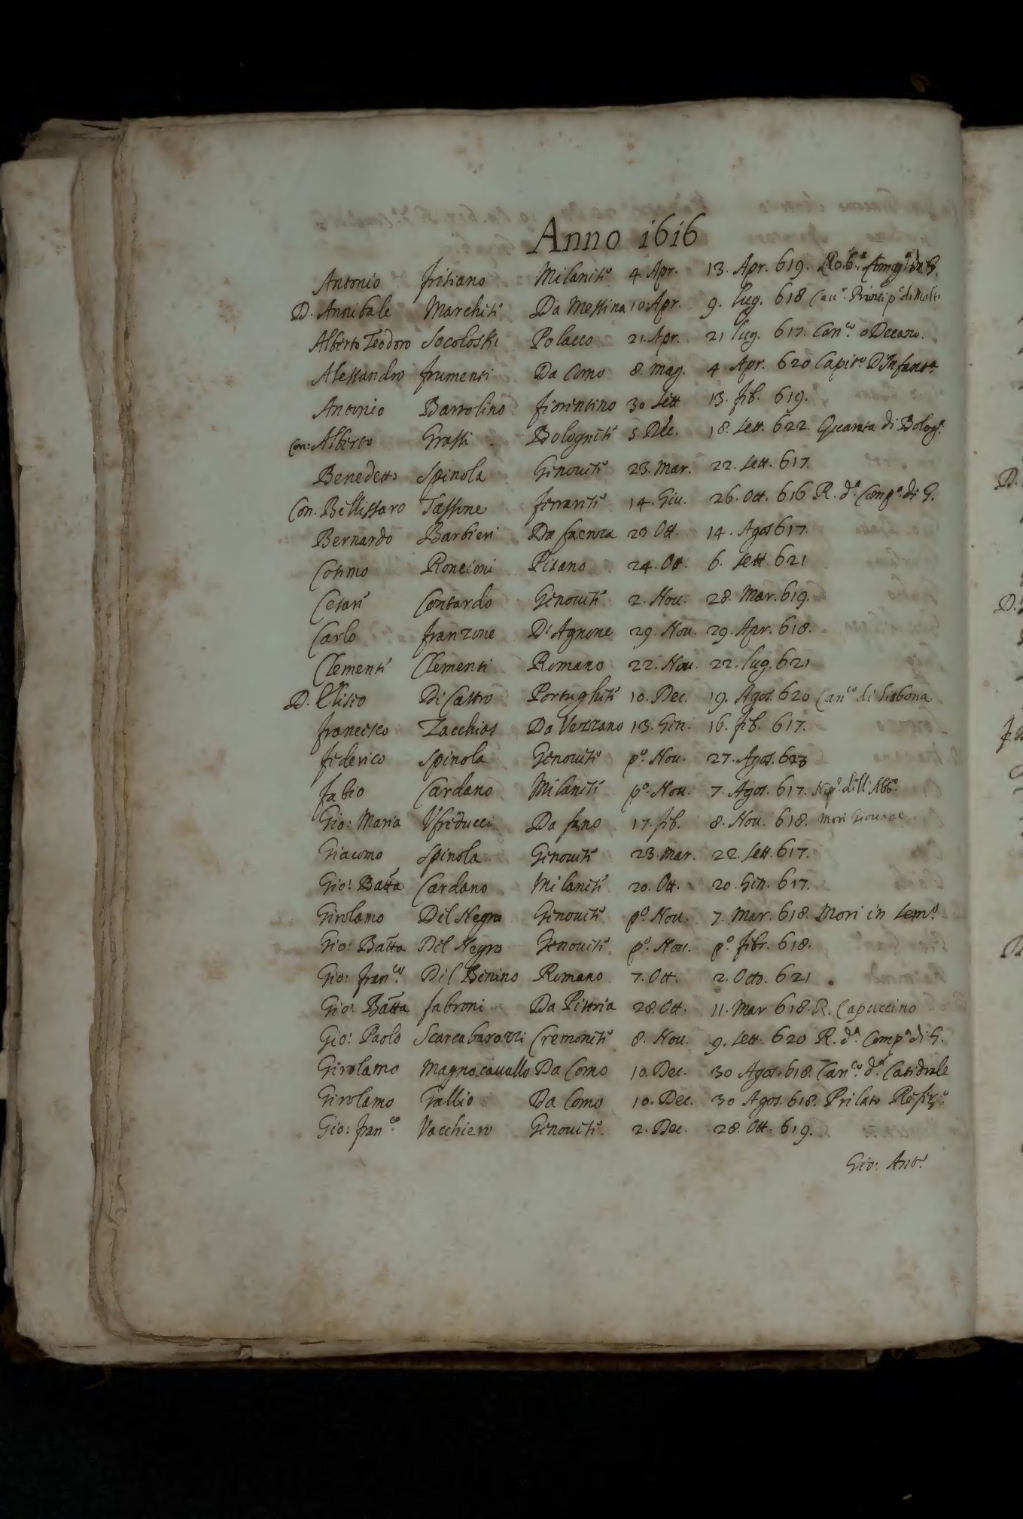 Anno 1616
Antonio Frisiano Milanese 4 Apr. 13. Apr. 619.
D. Annibale Marchese Da Messina 10 Apr. 9. lug. 618
Alberto Teodoro Socoloski Polacco 21 Apr. 21 lug. 617. Canco o Decano.
Alessandro frumenti Da Como 8. mag. 4 Apr. 620 Capito D'Infanta
Antonio Bartolino fiorentino 30 Sett 13. feb. 619.
Con: Alberto Grassi Bolognese 5 Dec. 18. Sett. 622 Quaranta di Bolog.
Benedetto Spinola Genovese 23. Mar. 22. Sett. 617.
Con. Bellissaro Tassone ferrarese 14. Giu. 26. Ott. 616 R. da Compa di G.
Bernardo Barbieri Da faenza 20 Ott. 14. Agos 617.
Cosimo Roncioni Pisano 24. Ott. 6. Sett 621
Cesare Contardo Genovese 2. Nov. 28. Mar. 619.
Carlo franzone D'Agnone 29. Nov. 29. Apr. 618.
Clemente Clementi Romano 22. Nov. 22. lug. 621
D. Eliseo Di Castro Portughese 10. Dec. 19. Agos 620 Canco di Lisbona
francesco Zacchias Da Vezzano 13. Gen. 16. feb. 617.
federico Spinola Genovese po. Nov. 27. Agos. 623
fabio Cardano Milanese po. Nov. 7 Agos. 617.
Gio: Maria Ufreducci Da fano 17. feb. 8. Nov. 618. Mori
Giacomo Spinola Genovese 23 Mar. 22. Sett. 617.
Gio: Batta Cardano Milanese 20. Ott. 20. Gen. 617.
Girolamo Del Negro Genovese po. Nov. 7. Mar. 618. Mori in Semo
Gio: Batta Del Negro Genovese po. Nov. po. febr. 618.
Gio: franco Del Benino Romano 7. Ott. 2. Otto. 621
Gio: Batta fabroni Da Pistoia 28. Ott. 11. Mar 618. R. Capuccino
Gio: Paolo Scarcabarozzi Cremonese 8. Nov. 9. Sett. 620 R. da Compa di G.
Girolamo Magnocavallo Da Como 10. Dec. 30 Agos. 618. Canco da Catedrale
Girolamo Gallio Da Como 10. Dec. 30 Agos. 618. Prelato
Gio: franco Vacchiero Genovese 2. Dec. 28. Ott. 619.
Gio: Anto